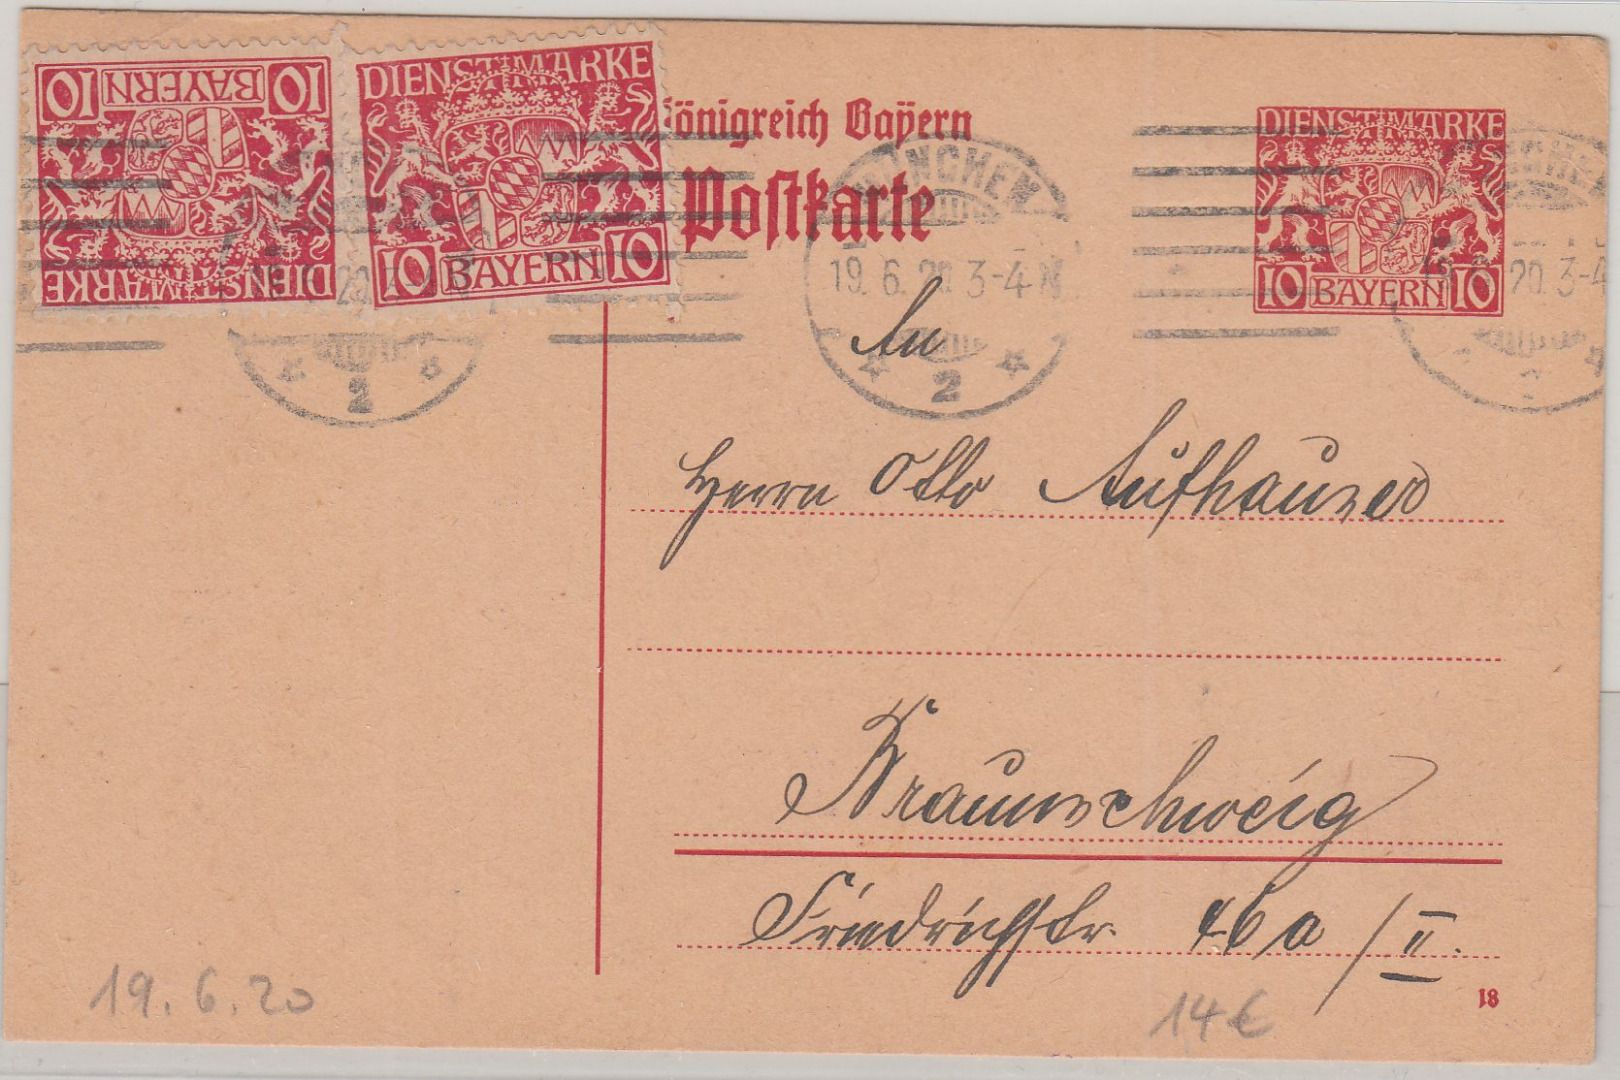 10 BAYERN 10
DIENSTMARKE
DIENSTMARKE
10 BAYERN 10
Königreich Bayern
Postkarte
DIENSTMARKE
10 BAYERN 10
MÜNCHEN
19. 6. 20. 3-4 N
2
2
20. 3-4
An
Herrn Otto Aufhauser
Braunschweig
Friedrichstr. 46a / II.
19. 6. 20
14€
18